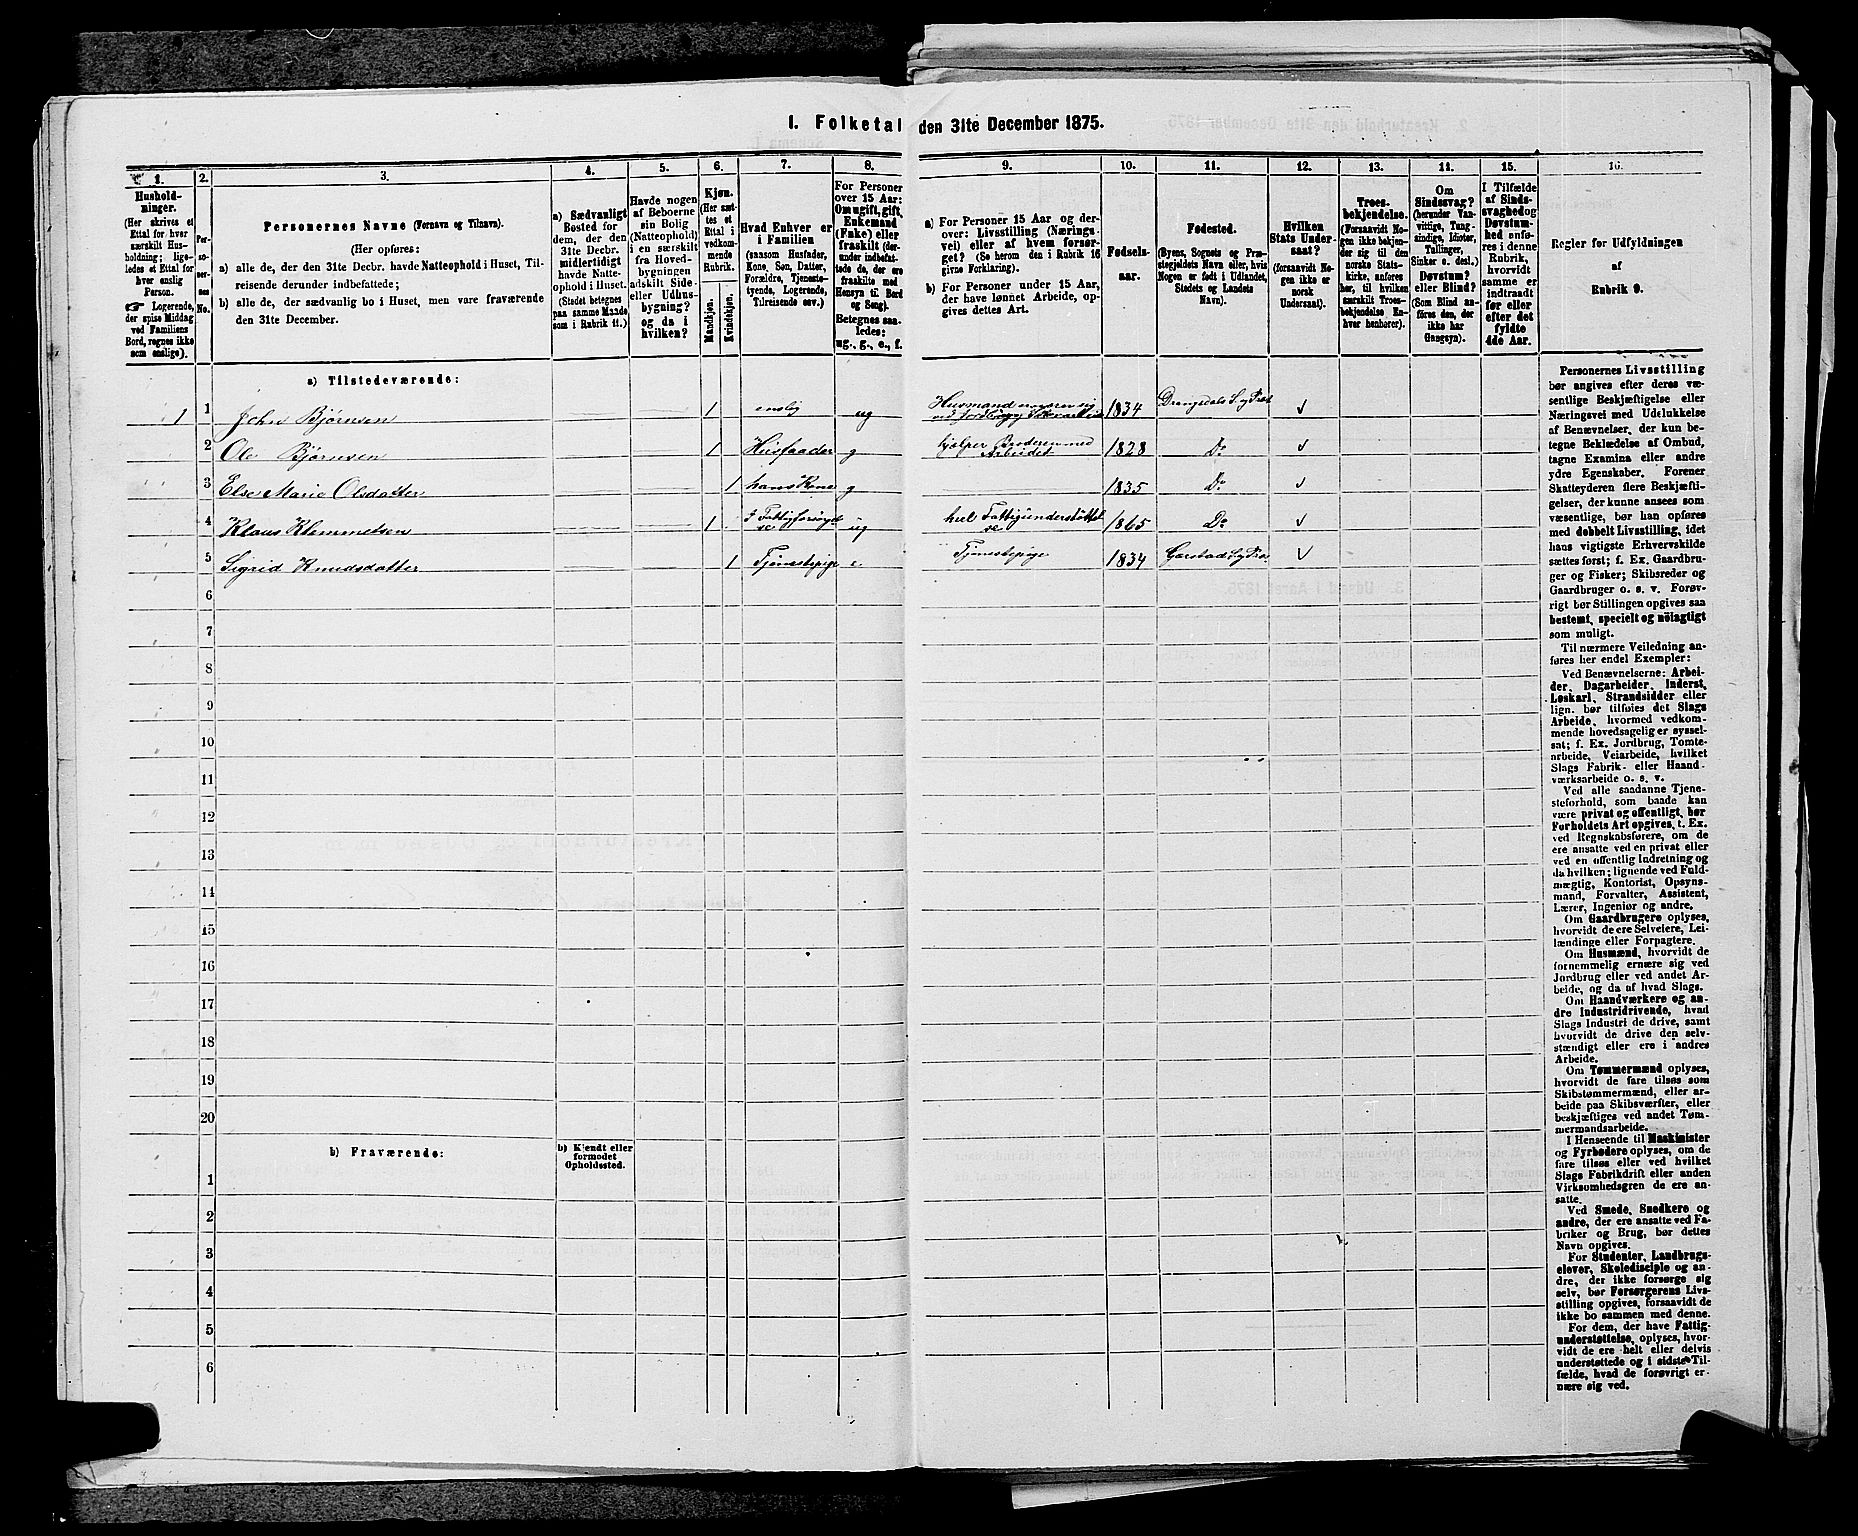 I. Folketal den 31te December 1875.
1. 2. 3. 4. 5. 6. 7. 8. 9. 10. 11. 12. 13. 14. 15. 16.
Hushold-
ninger.
(Her skrives et
Ettal for hver
særskilt Hus-
holdning; lige-
ledes et Ettal for
hver enslig
Person.
Logerende,
der spise Middag
ved Familiens
Bord, regnes ikke
som enslige).
Per-
so-
ner-
nes
No.
Personernes Navne (Fornavn og Tilnavn).
(Her opføres:
a) alle de, der den 31te Decbr. havde Natteophold i Huset, Til-
reisende derunder indbefattede;
b) alle de, der sædvanlig bo i Huset, men vare fraværende
den 31te December.
a) Sædvanligt
Bosted for
dem, der den
31te Decbr.
midlertidigt
havde Natte-
ophold i Huset.
(Stedet betegnes
paa samme Maade
som i Rubrik 11.)
Havde nogen
af Beboerne
sin Bolig
(Natteophold)
i en særskilt
fra Hoved-
bygningen
adskilt Side-
eller Udhus-
bygning?
og da i
hvilken?
Kjøn.
(Her sæt-
tes et
Ettal i
vedkom-
mende
Rubrik.
Mandkjøn.
Kvindekjøn.
Hvad Enhver er
i Familien
(saasom Husfader,
Kone, Søn, Datter,
Forældre, Tjeneste-
tyende, Logerende,
Tilreisende osv.)
For Personer
over 15 Aar:
Om ugift, gift,
Enkemand
(Enke) eller
fraskilt (der-
under indbefat-
tede de, der ere
fraskilte med
Hensyn til Bord
og Seng).
Betegnes saa-
ledes:
ug., g., e., f.
a) For Personer 15 Aar og der-
over: Livsstilling (Nærings-
vei) eller af hvem forsør-
get? (Se herom den i Rubrik 16
givne Forklaring).
b) For Personer under 15 Aar,
der have lønnet Arbeide, op-
gives dettes Art.
Fødsels-
aar.
Fødested.
(Byens, Sognets og Præ-
stegjeldets Navn eller, hvis
Nogen er født i Udlandet,
Stedets og Landets
Navn).
Hvilken
Stats Under-
saat?
(forsaavidt No-
gen ikke er
norsk
Undersaat).
Troes-
bekjendelse.
(Forsaavidt No-
gen ikke bekjen-
der sig til den
norske Stats-
kirke, anføres
her, til hvilken
særskilt Troes-
bekjendelse En-
hver henhører).
Om
Sindssvag?
(herunder Van-
vittige, Tung-
sindige, Idioter,
Tullinger,
Sinker o. desl.)
Døvstum?
eller Blind?
(Som Blind an-
føres den, der
ikke har
Gangsyn).
I Tilfælde
af Sinds-
svaghed og
Døvstum-
hed anfø-
res i denne
Rubrik,
hvorvidt
samme er
indtraadt
før eller
efter det
fyldte
4de Aar.
Regler for Udfyldningen
af
Rubrik 9.
a) Tilstedeværende:
1 1 John Bjørnsen 1 enslig ug 1834 Drangedals S. og Præst
2 Ole Bjørnsen 1 Husfaader g hjelper Broderen med Arbeidet 1828 Do
3 Else Marie Olsdatter 1 hans Kone g 1835 Do
4 Klaus Klemmetsen 1 ug hel Fattigunderstøttelse 1865 Do
5 Sigrid Knudsdatter 1 Tjenestepige Tjenestepige 1834
6
7
8
9
10
11
12
13
14
15
16
17
18
19
20
b) Fraværende:
b) Kjendt eller
formodet
Opholdssted.
1
2
3
4
5
6
Personernes Livsstilling
bør angives efter deres væ-
sentlige Beskjæftigelse eller
Næringsvei med Udelukkelse
af Benævnelser, der kun be-
tegne Beklædelse af Ombud,
tagne Examina eller andre
ydre Egenskaber. Forener
Skatteyderen flere Beskjæfti-
gelser, der kunne ansees som
væsentlige, bør han opføres
med dobbelt Livsstilling, idet
hans vigtigste Erhvervskilde
sættes først; f. Ex. Gaardbru-
ger og Fisker; Skibsreder og
Gaardbruger o. s. v. Forøv-
rigt bør Stillingen opgives saa
bestemt, specielt og nöiagtigt
som muligt.
Til nærmere Veiledning an-
føres her endel Exempler:
Ved Benævnelserne: Arbei-
der, Dagarbeider, Inderst,
Løskarl, Strandsidder eller
lign. bør tilføies det Slags
Arbeide, hvormed vedkom-
mende hovedsagelig er syssel-
sat; f. Ex. Jordbrug, Tomte-
arbeide, Veiarbeide, hvilket
Slags Fabrik- eller Haand-
værksarbeide o. s. v.
Ved alle saadanne Tjene-
steforhold, som baade kan
være privat og offentligt, bør
Forholdets Art opgives, t. Ex.
ved Regnskabsførere, om de
ere ansatte ved en privat eller
ved en offentlig Indretning og
da hvilken; lignende ved Fuld-
mægtig, Kontorist, Opsyns-
mand, Forvalter, Assistent,
Lærer, Ingeniør og andre.
Om Gaardbrugere oplyses,
hvorvidt de ere Selveiere, Lei-
lændinge eller Forpagtere.
Om Husmænd, hvorvidt de
fornemmelig ernære sig ved
Jordbrug eller ved andet Ar-
beide, og da af hvad Slags.
Om Haandværkere og an-
dre Industridrivende, hvad
Slags Industri de drive, samt
hvorvidt de drive den selv-
stændigt eller ere i andres
Arbeide.
Om Tømmermænd oplyses,
hvorvidt de fare tilsøs som
Skibstømmermænd, eller ar-
beide paa Skibsværfter, eller
beskjæftiges ved andet Tøm-
mermandsarbeide.
I Henseende til Maskinister
og Fyrbødere oplyses, om de
fare tilsøs eller ved hvilket
Slags Fabrikdrift eller anden
Virksomhedsgren de ere an-
satte.
Ved Smede, Snedkere og
andre, der ere ansatte ved Fa-
briker og Brug, bør dettes
Navn opgives.
For Studenter, Landbrugs-
elever, Skoledisciple og an-
dre, der ikke forsørge sig
selv, bør Forsørgerens Livs-
stilling opgives, forsaavidt de
ikke bo sammen med denne.
For dem, der have Fattig-
understøttelse, oplyses, hvor-
vidt de ere helt eller delvis
understøttede og i sidste Til-
fælde, hvad de forøvrigt er-
nære sig ved.